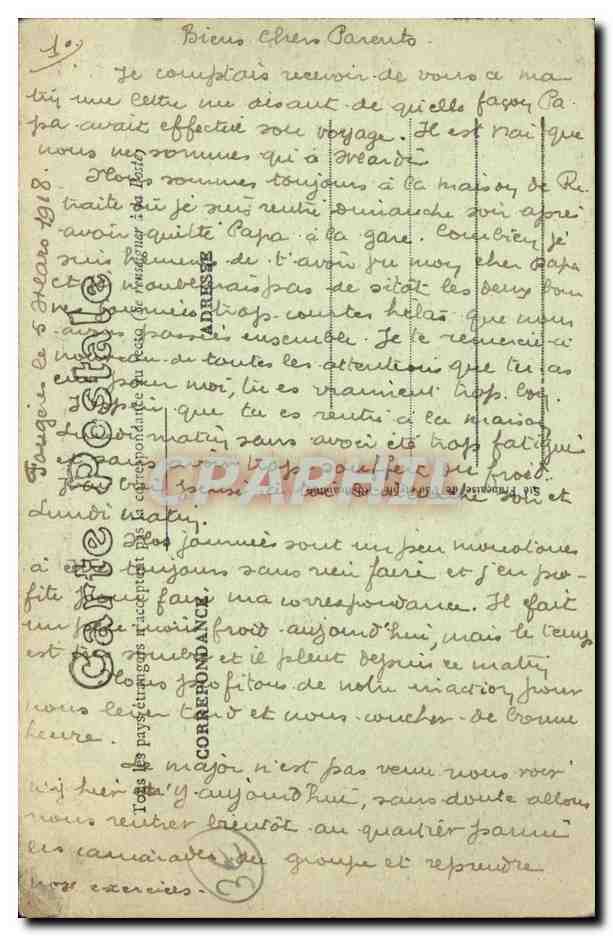 1º
Biens Chers Parents.
Fougères le 5 Mars 1918.
Je comptais recevoir de vous ce ma-
tin une lettre me disant de quelle façon Pa-
pa avait effectué son voyage. Il est vrai que
nous ne sommes qu'à Mardi
Nous sommes toujours à la maison de Re-
traite où je suis rentré dimanche soir après
avoir quitté Papa à la gare. Combien je
suis heureux de t'avoir vu mon cher Papa
et n'oublierais pas de sitôt les deux bon
nes journées trop courtes hélas que nous
avons passées ensemble. Je te remercie à
nouveau de toutes les attentions que tu as
eu pour moi, tu es vraiment trop bon.
J'espère que tu es rentré à la maison
Lundi matin sans avoir été trop fatigué
et sans avoir trop souffert du froid.
J'ai bien pensé à toi soir et
Lundi matin.
Nos journées sont un peu monotones
à être toujours sans rien faire et j'en pro-
fite pour faire ma correspondance. Il fait
un peu moins froid aujourd'hui, mais le temps
est sombre et il pleut depuis ce matin
Nous profitons de notre inaction pour
nous lever tard et nous coucher de bonne
heure.
Le major n'est pas venu nous voir
ni hier ni aujourd'hui, sans doute allons
nous rentrer bientôt au quartier parmi
les camarades du groupe et reprendre
nos exercices.
3€
Carte Postale
Tous les pays étrangers n'acceptent pas la correspondance au recto (Se renseigner à la Poste)
CORREPONDANCE.
ADRESSE
CPARHIL